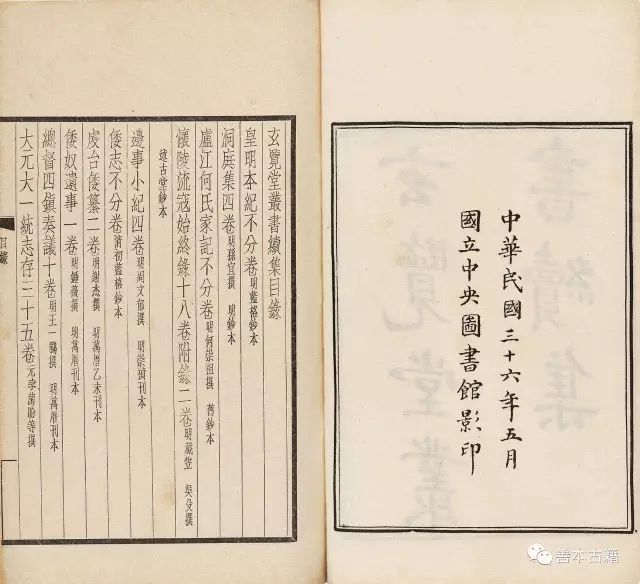 中華民國三十六年五月
國立中央圖書館影印
玄覽堂叢書續集目錄
皇明本紀不分卷 明藍格鈔本
洞庭集四卷 明孫宜撰 明鈔本
廬江何氏家記不分卷 明何崇祖撰 舊鈔本
懷陵流寇始終錄十八卷附錄二卷 明戴笠 吳殳撰
述古堂鈔本
邊事小紀四卷 明周文郁撰 明崇禎刊本
倭志不分卷 清初藍格鈔本
虔台倭纂二卷 明謝杰撰 明萬曆乙未刊本
倭奴遺事一卷 明鍾薇撰 明萬曆刊本
總督四鎮奏議十卷 明王一鶚撰 明萬曆刊本
大元大一統志存三十五卷 元孛蘭肹等撰
目錄
善本古籍